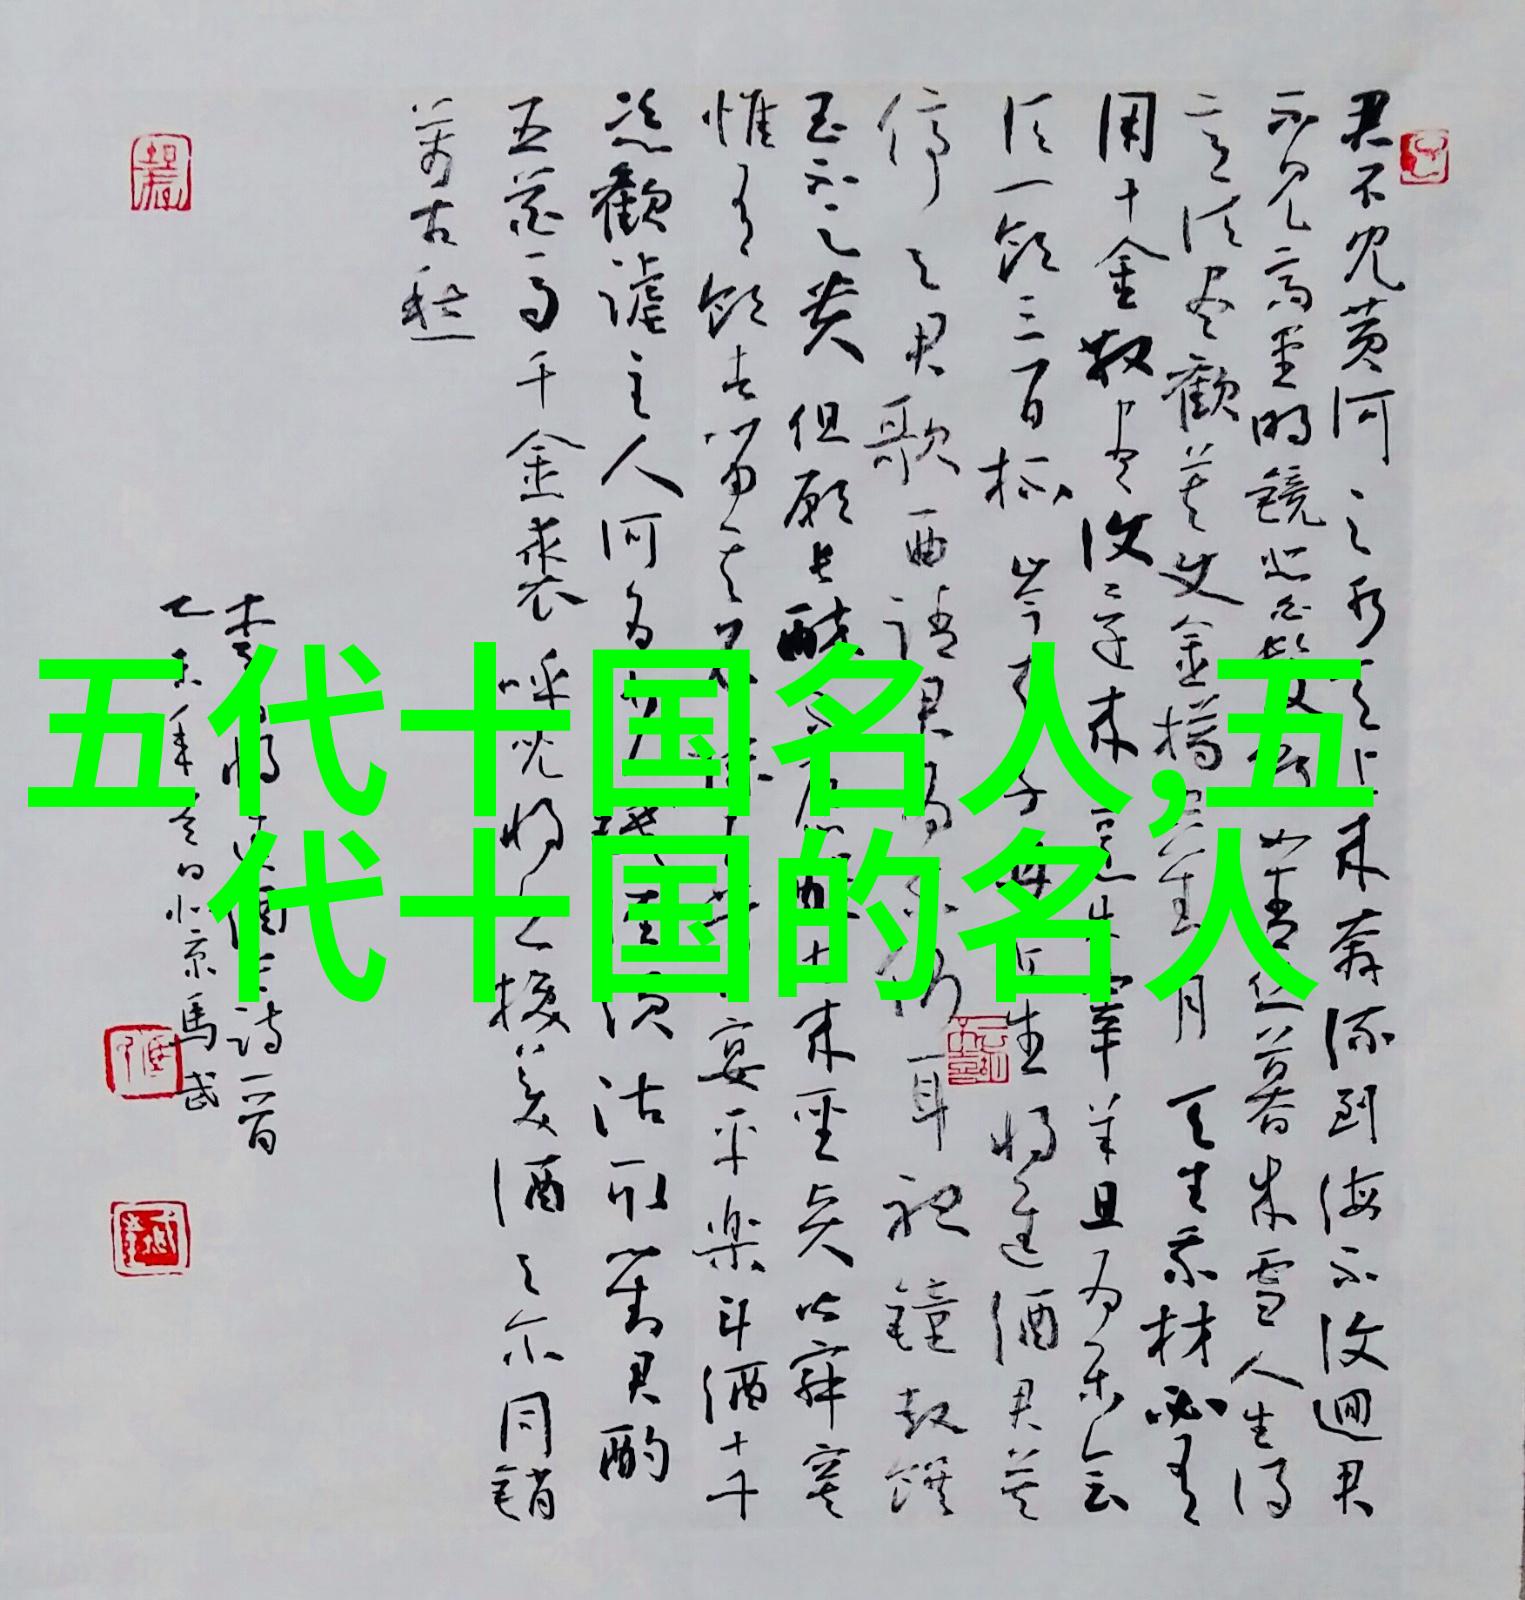 五代十国名人,五
代十国的名人
君不见黄河之水天上来奔流到海不復迴君
不见高堂明镜悲白髮朝如青丝暮成雪人生得
意须尽歡莫使金樽空月天生我材必有
用千金散尽復還来烹牛宰羊且为乐会
须一饮三百杯岑夫子丹丘生将进酒君莫
停与君歌一曲請君为我倾耳聽鐘鼓馔
玉不足贵但願长醉不願醒古来圣贤皆寂寞
惟有饮者留其名陈王昔时宴平楽斗酒十千
恣歡謔主人何为言少钱径须沽取对君酌
五花马千金裘呼兒将出换美酒与尔同销
萬古愁
李白将进酒诗一首
乙未年冬日北京馬武